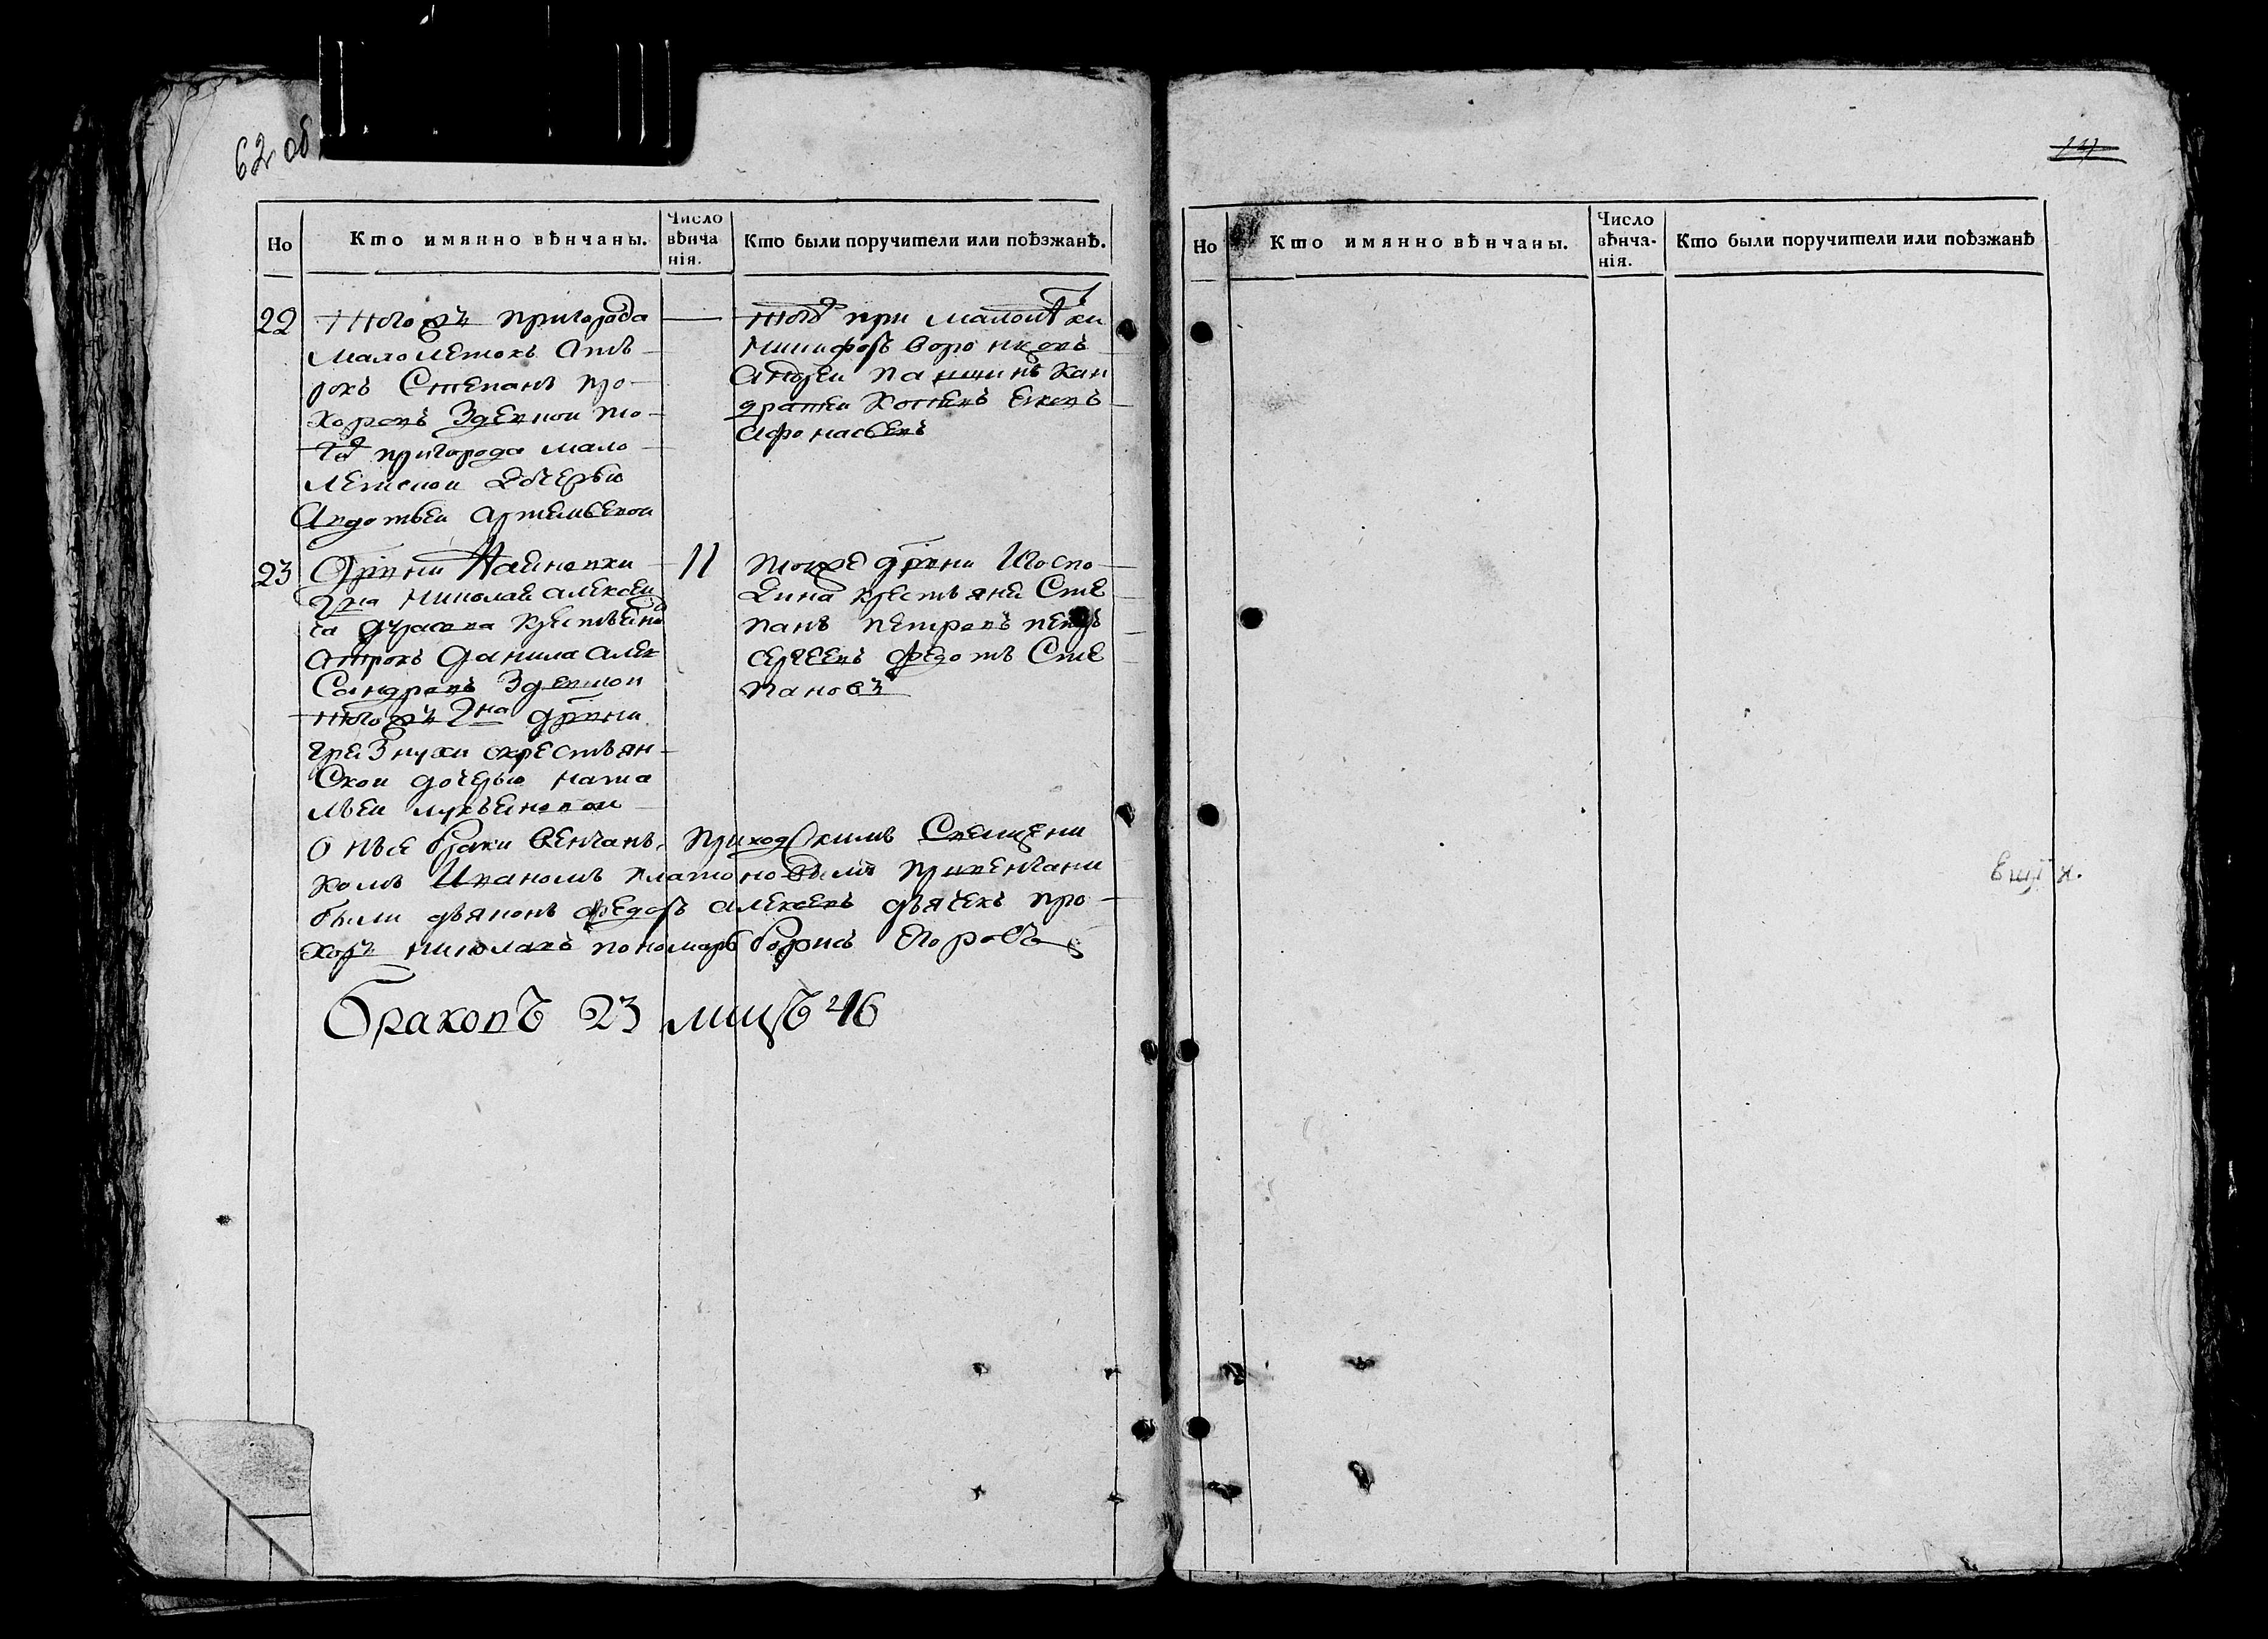 62 об
Но
Кто имянно вѣнчаны.
Число
вѣнча
нія.
Кто были поручители или поѣзжанѣ.
22
тогожъ пригорода
малолетокъ отъ
рокъ Степанъ про
хоровъ Здевкои то
гож пригорода мало
летской дочерью
Авдотьеи Артемьевои
тогож при
Никифоръ Воронковъ
Андреи Паншинъ Кан
дратеи Котневъ
Афонасьевъ
23
Дрвни
Гдна Николая алексеи
ча Дурасова крестьянин
отрокъ Данила Алек
сандровъ Здевкои
тогожъ Гдна дрвни
грезнухи скрестьян
скои дочерью ната
льеи лукъеяновои
11
тоеже дрвни Игоспо
дина крестьяне Сте
панъ петровъ петръ
сергеевъ федотъ Сте
пановъ
браки венчанъ приходскимъ Свещени
комъ Иваномъ платоновымъ привенчани
были дьяконъ федоръ алексевъ дьячекъ про
хоръ николаевъ пономарь борисъ Егоровъ
браковъ 23 лицъ 46
Но
Кто имянно вѣнчаны.
Число
вѣнча-
нія.
Кто были поручители или поѣзжанѣ